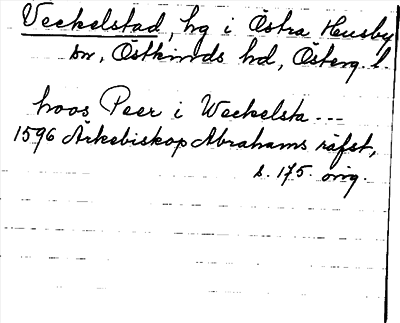 Veckelstad, hg i Östra Husby
sn, Östkinds hd, Österg. l.
hoos Peer i Weckelsta ---
1596 Ärkebiskop Abrahams räfst,
s. 175. orig.